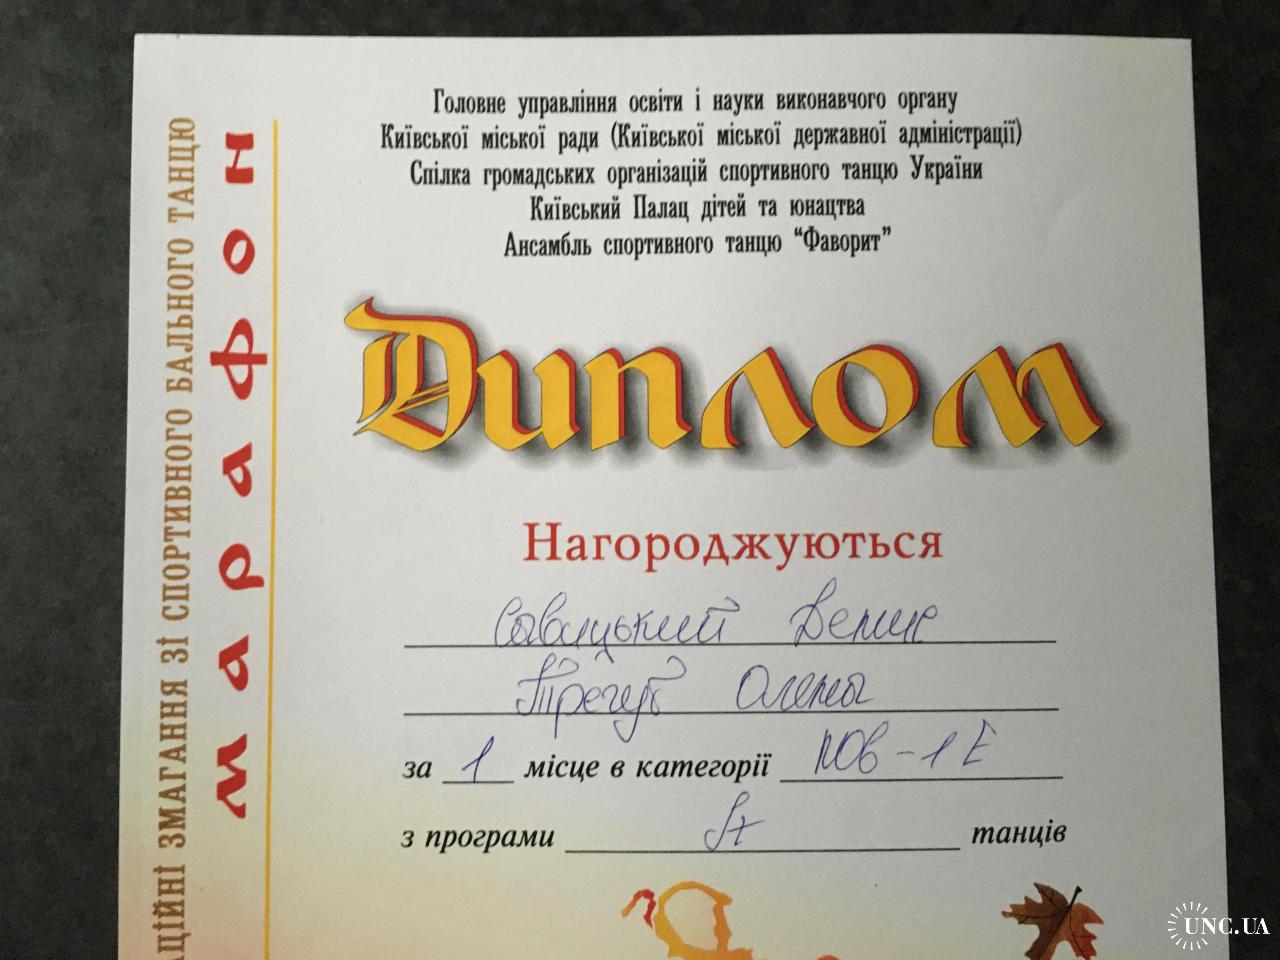 Головне управління освіти і науки виконавчого органу
Київської міської ради (Київської міської державної адміністрації)
Спілка громадських організацій спортивного танцю України
Київський Палац дітей та юнацтва
Ансамбль спортивного танцю “Фаворит”
Диплом
Нагороджуються
Савицький Денис
Трегуб Олена
за 1 місце в категорії Юв-1 Е
з програми St танців
АЦІЙНІ ЗМАГАННЯ ЗІ СПОРТИВНОГО БАЛЬНОГО ТАНЦЮ
марафон
UNC.UA